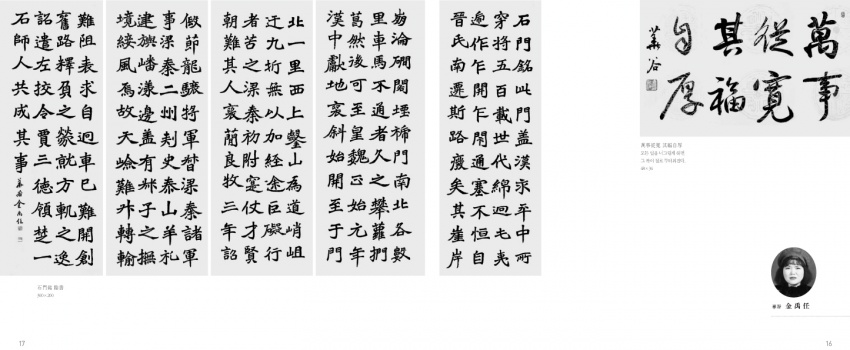 萬事
從寬
其福
自厚
華谷
萬事從寬 其福自厚
모든 일을 너그럽게 하면
그 복이 절로 두터워진다.
華谷 金禹任
16
石門銘此門蓋漢永平中所
穿將五百載世代綿迴屯夷
遞作乍開乍閉通塞不恒自
晉氏南遷斯路廢矣其崖岸
崩淪磵閣堙褫門南北各數
里車馬不通者久之攀蘿捫
葛然後可至皇魏正始元年
漢中獻地褒斜始開至于門
北一里西上鑿山為道峭岨
迂九折無以加經途巨礙行
者苦之梁秦初附寔仗才賢
朝難其人褒簡良牧三年詔
假節龍驤將軍督梁秦諸軍
事梁秦二州刺史泰山羊祉
建旟嶓漾邊蓋有叔子之撫
境綏風焉故天嶮難升轉輸
難阻表求自迴車已難開創
舊路擇負之勞就方軌之逸
詔遣左校令賈三德領楚一
石師人共成其事 華谷金禹任
石門銘 臨書
17